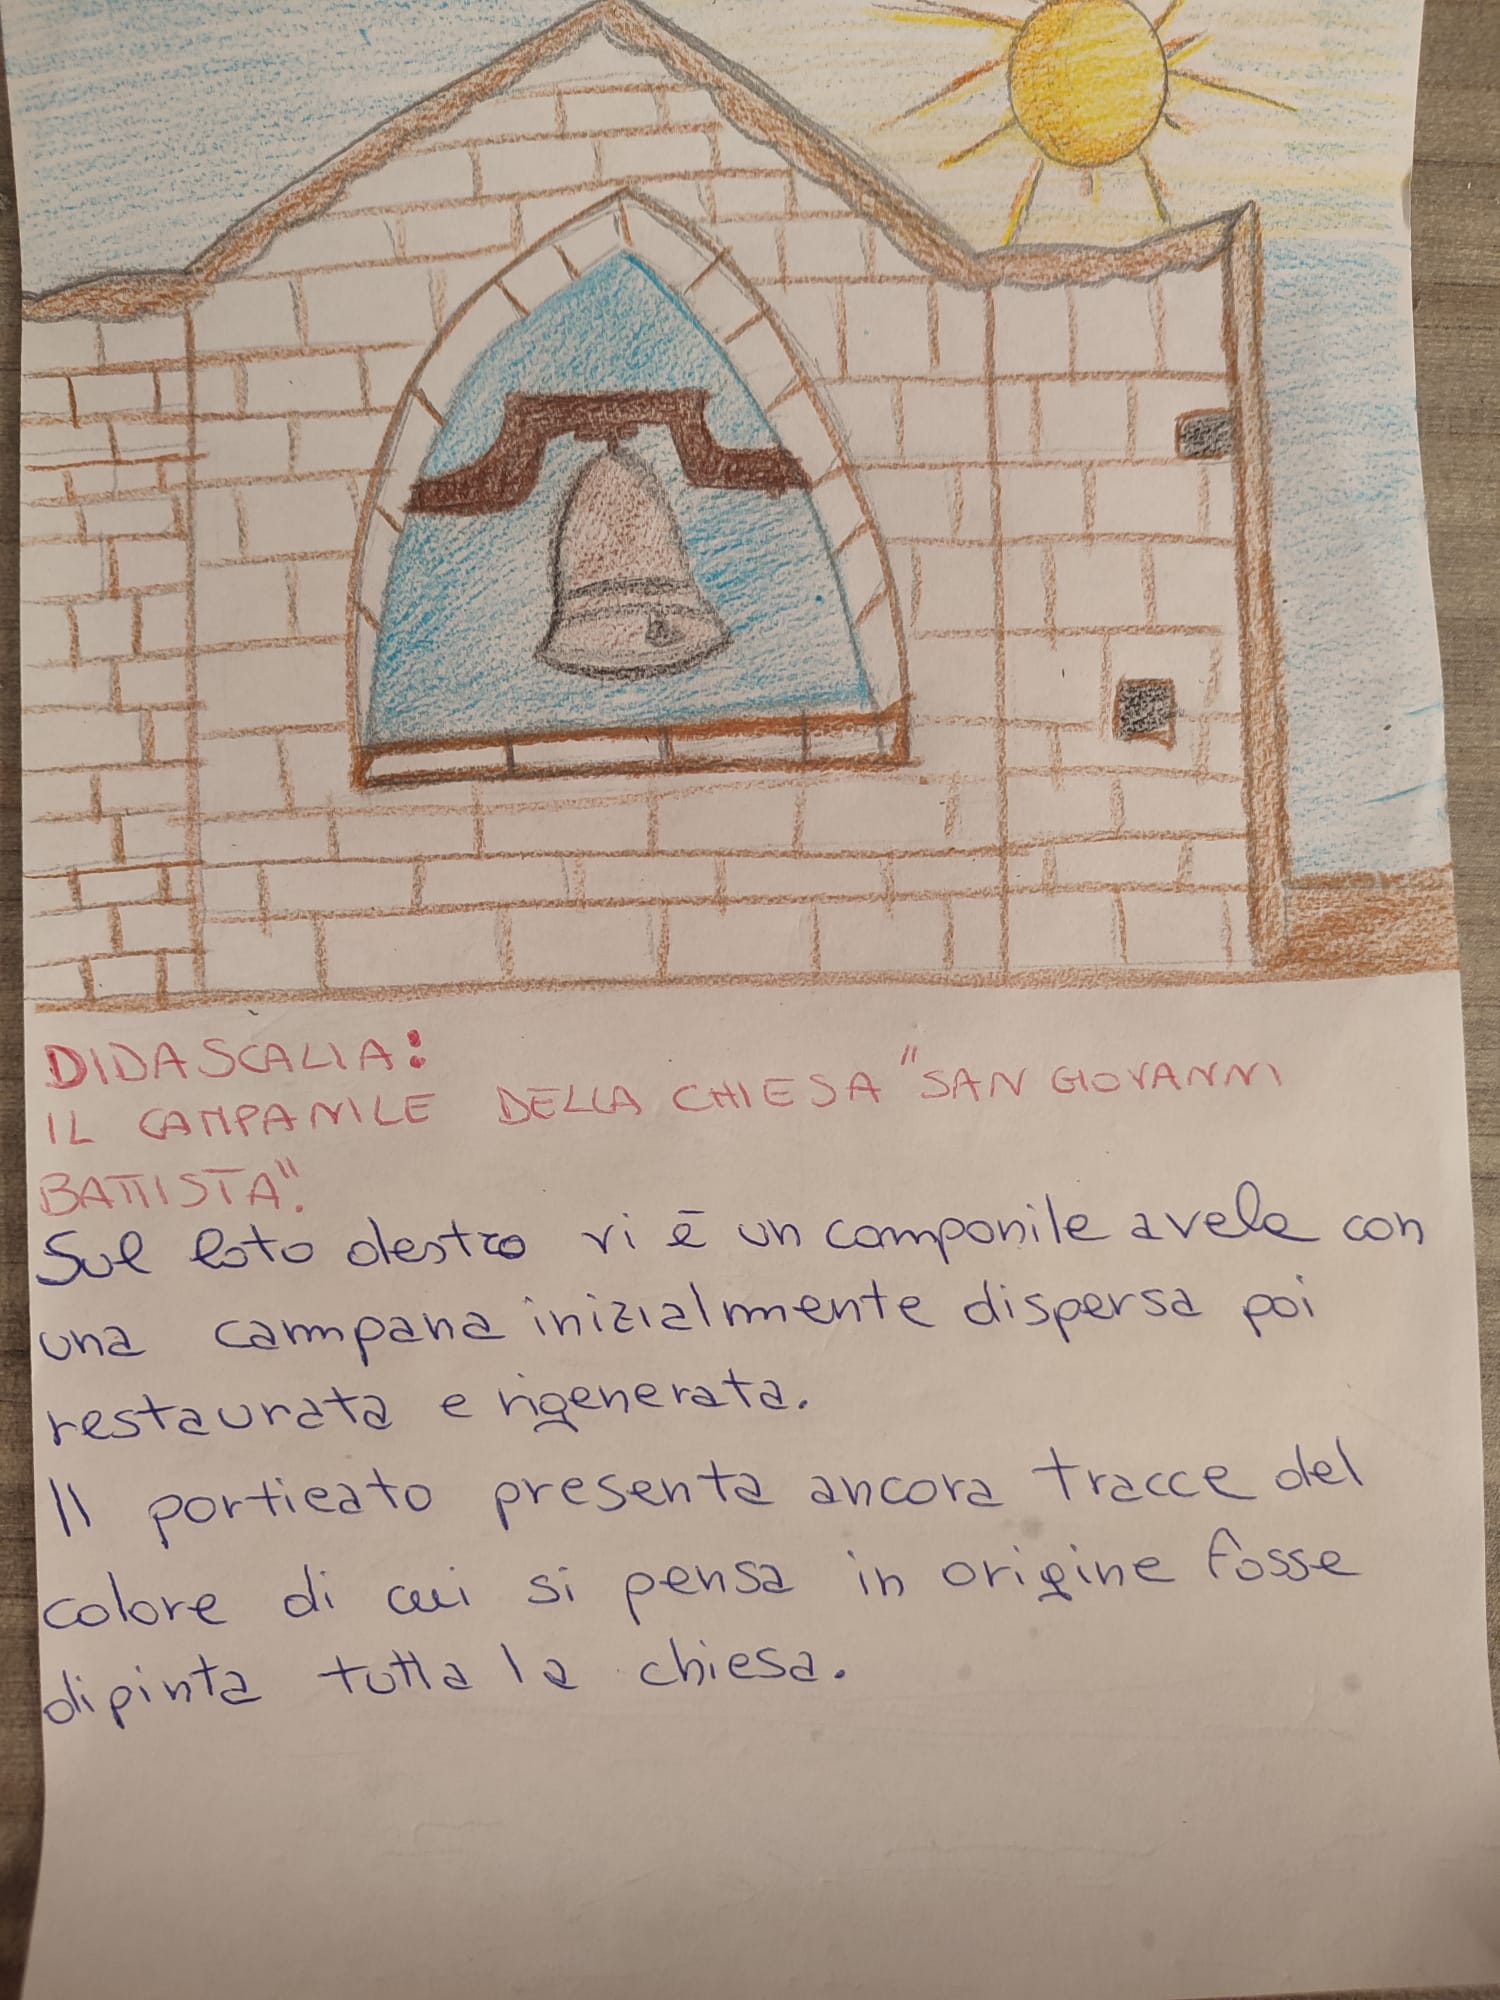 DIDASCALIA:
IL CAMPANILE DELLA CHIESA "SAN GIOVANNI
BATTISTA".
Sul lato destro vi è un campanile avele con
una campana inizialmente dispersa poi
restaurata e rigenerata.
Il porticato presenta ancora tracce del
colore di cui si pensa in origine fosse
dipinta tutta la chiesa.